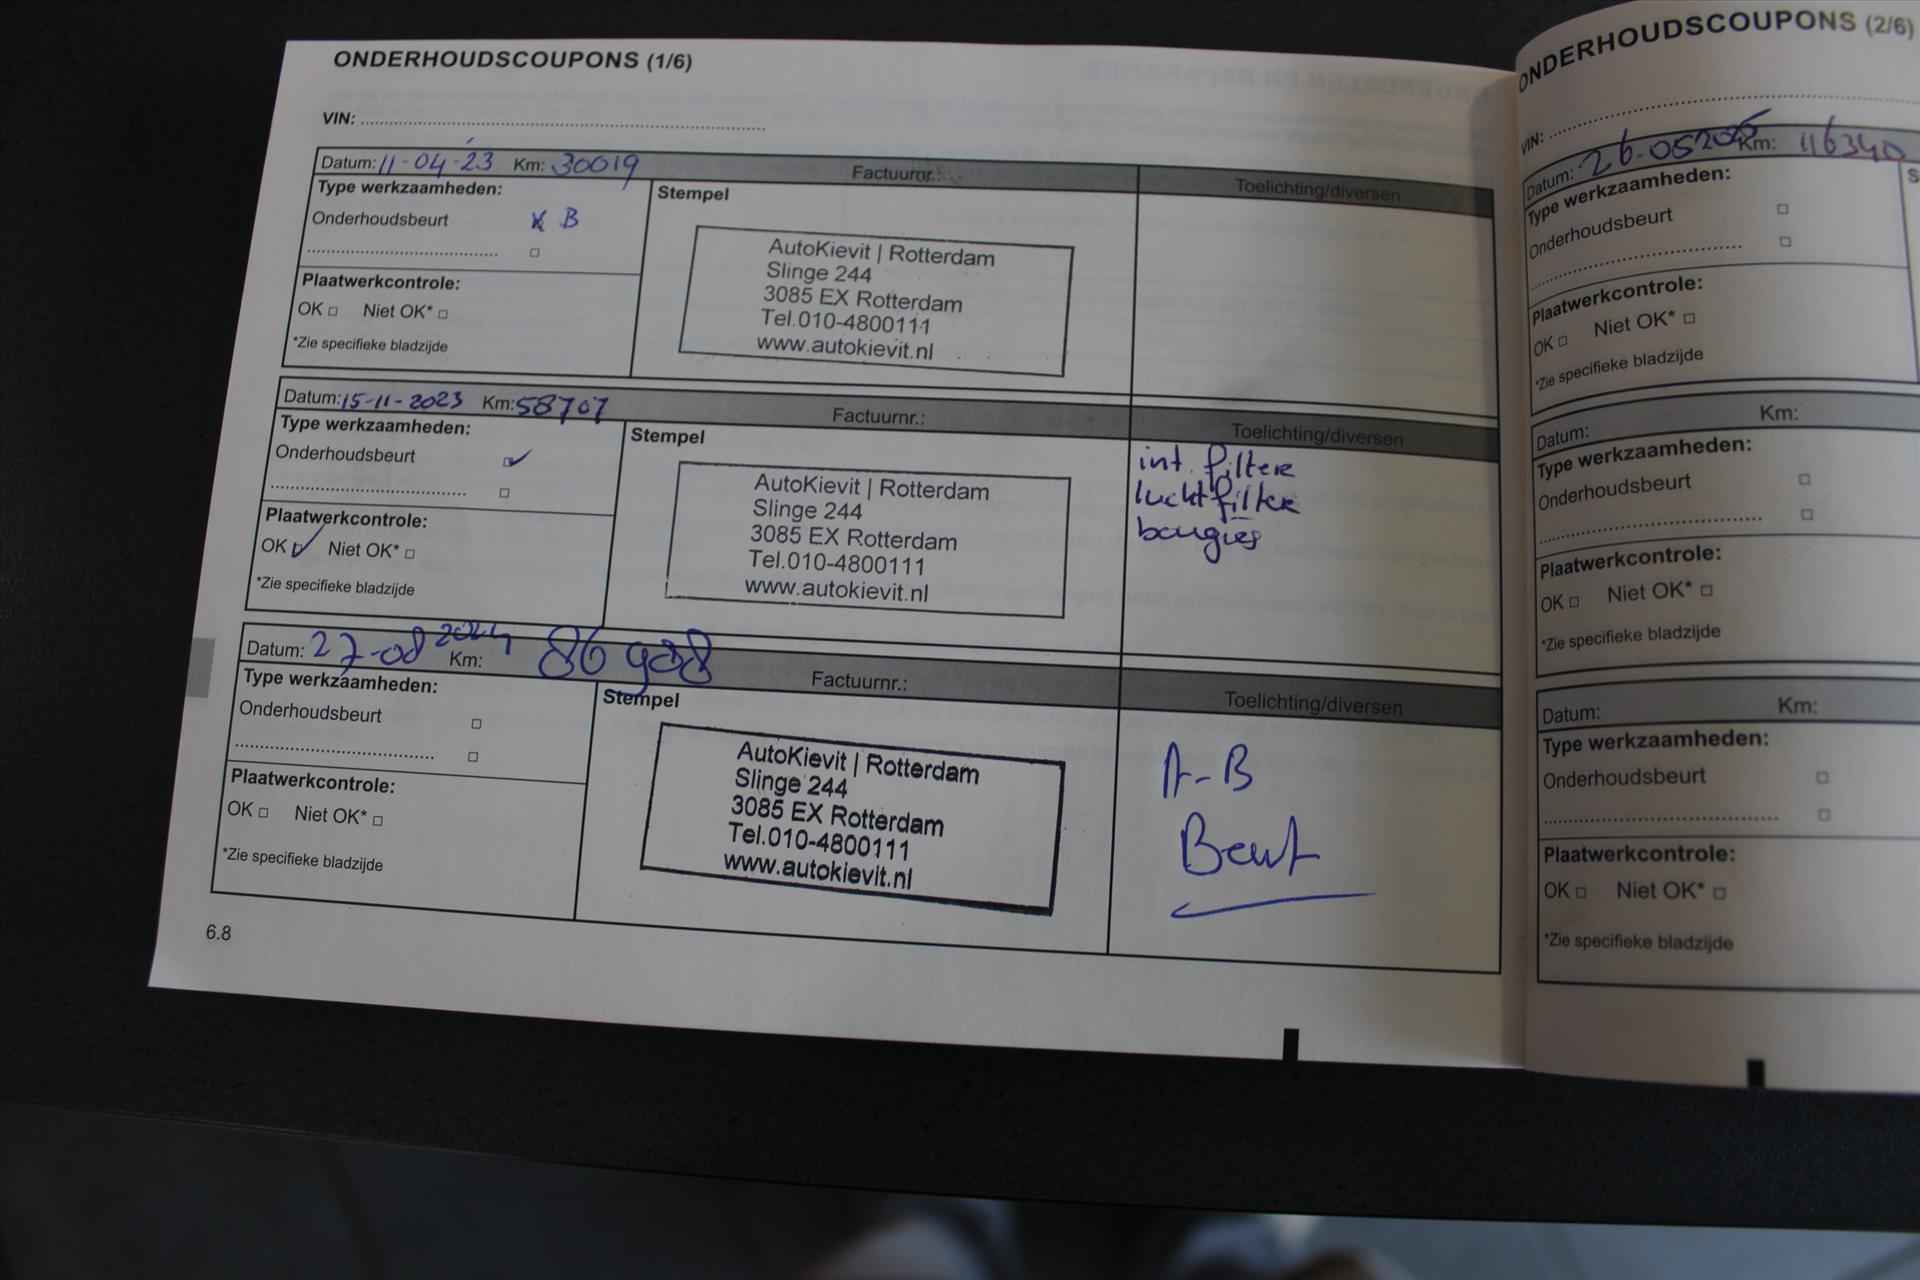 ONDERHOUDSCOUPONS (1/6)
VIN:
Datum: 11-04-23 Km: 30019 Factuurnr.: Toelichting/diversen
Type werkzaamheden: Stempel
Onderhoudsbeurt B
Plaatwerkcontrole:
OK Niet OK*
*Zie specifieke bladzijde
AutoKievit | Rotterdam
Slinge 244
3085 EX Rotterdam
Tel.010-4800111
www.autokievit.nl
Datum: 15-11-2023 Km: 58707 Factuurnr.: Toelichting/diversen
Type werkzaamheden: Stempel
Onderhoudsbeurt
Plaatwerkcontrole:
OK Niet OK*
*Zie specifieke bladzijde
AutoKievit | Rotterdam
Slinge 244
3085 EX Rotterdam
Tel.010-4800111
www.autokievit.nl
int. filter
luchtfilter
bougies
Datum: 27-08 2024 Km: 86 938 Factuurnr.: Toelichting/diversen
Type werkzaamheden: Stempel
Onderhoudsbeurt
Plaatwerkcontrole:
OK Niet OK*
*Zie specifieke bladzijde
AutoKievit | Rotterdam
Slinge 244
3085 EX Rotterdam
Tel.010-4800111
www.autokievit.nl
A-B
Beurt
6.8
ONDERHOUDSCOUPONS (2/6)
VIN:
Datum: 26-05 2025 Km: 116340
Type werkzaamheden:
Onderhoudsbeurt
Plaatwerkcontrole:
OK Niet OK*
*Zie specifieke bladzijde
Datum: Km:
Type werkzaamheden:
Onderhoudsbeurt
Plaatwerkcontrole:
OK Niet OK*
*Zie specifieke bladzijde
Datum: Km:
Type werkzaamheden:
Onderhoudsbeurt
Plaatwerkcontrole:
OK Niet OK*
*Zie specifieke bladzijde